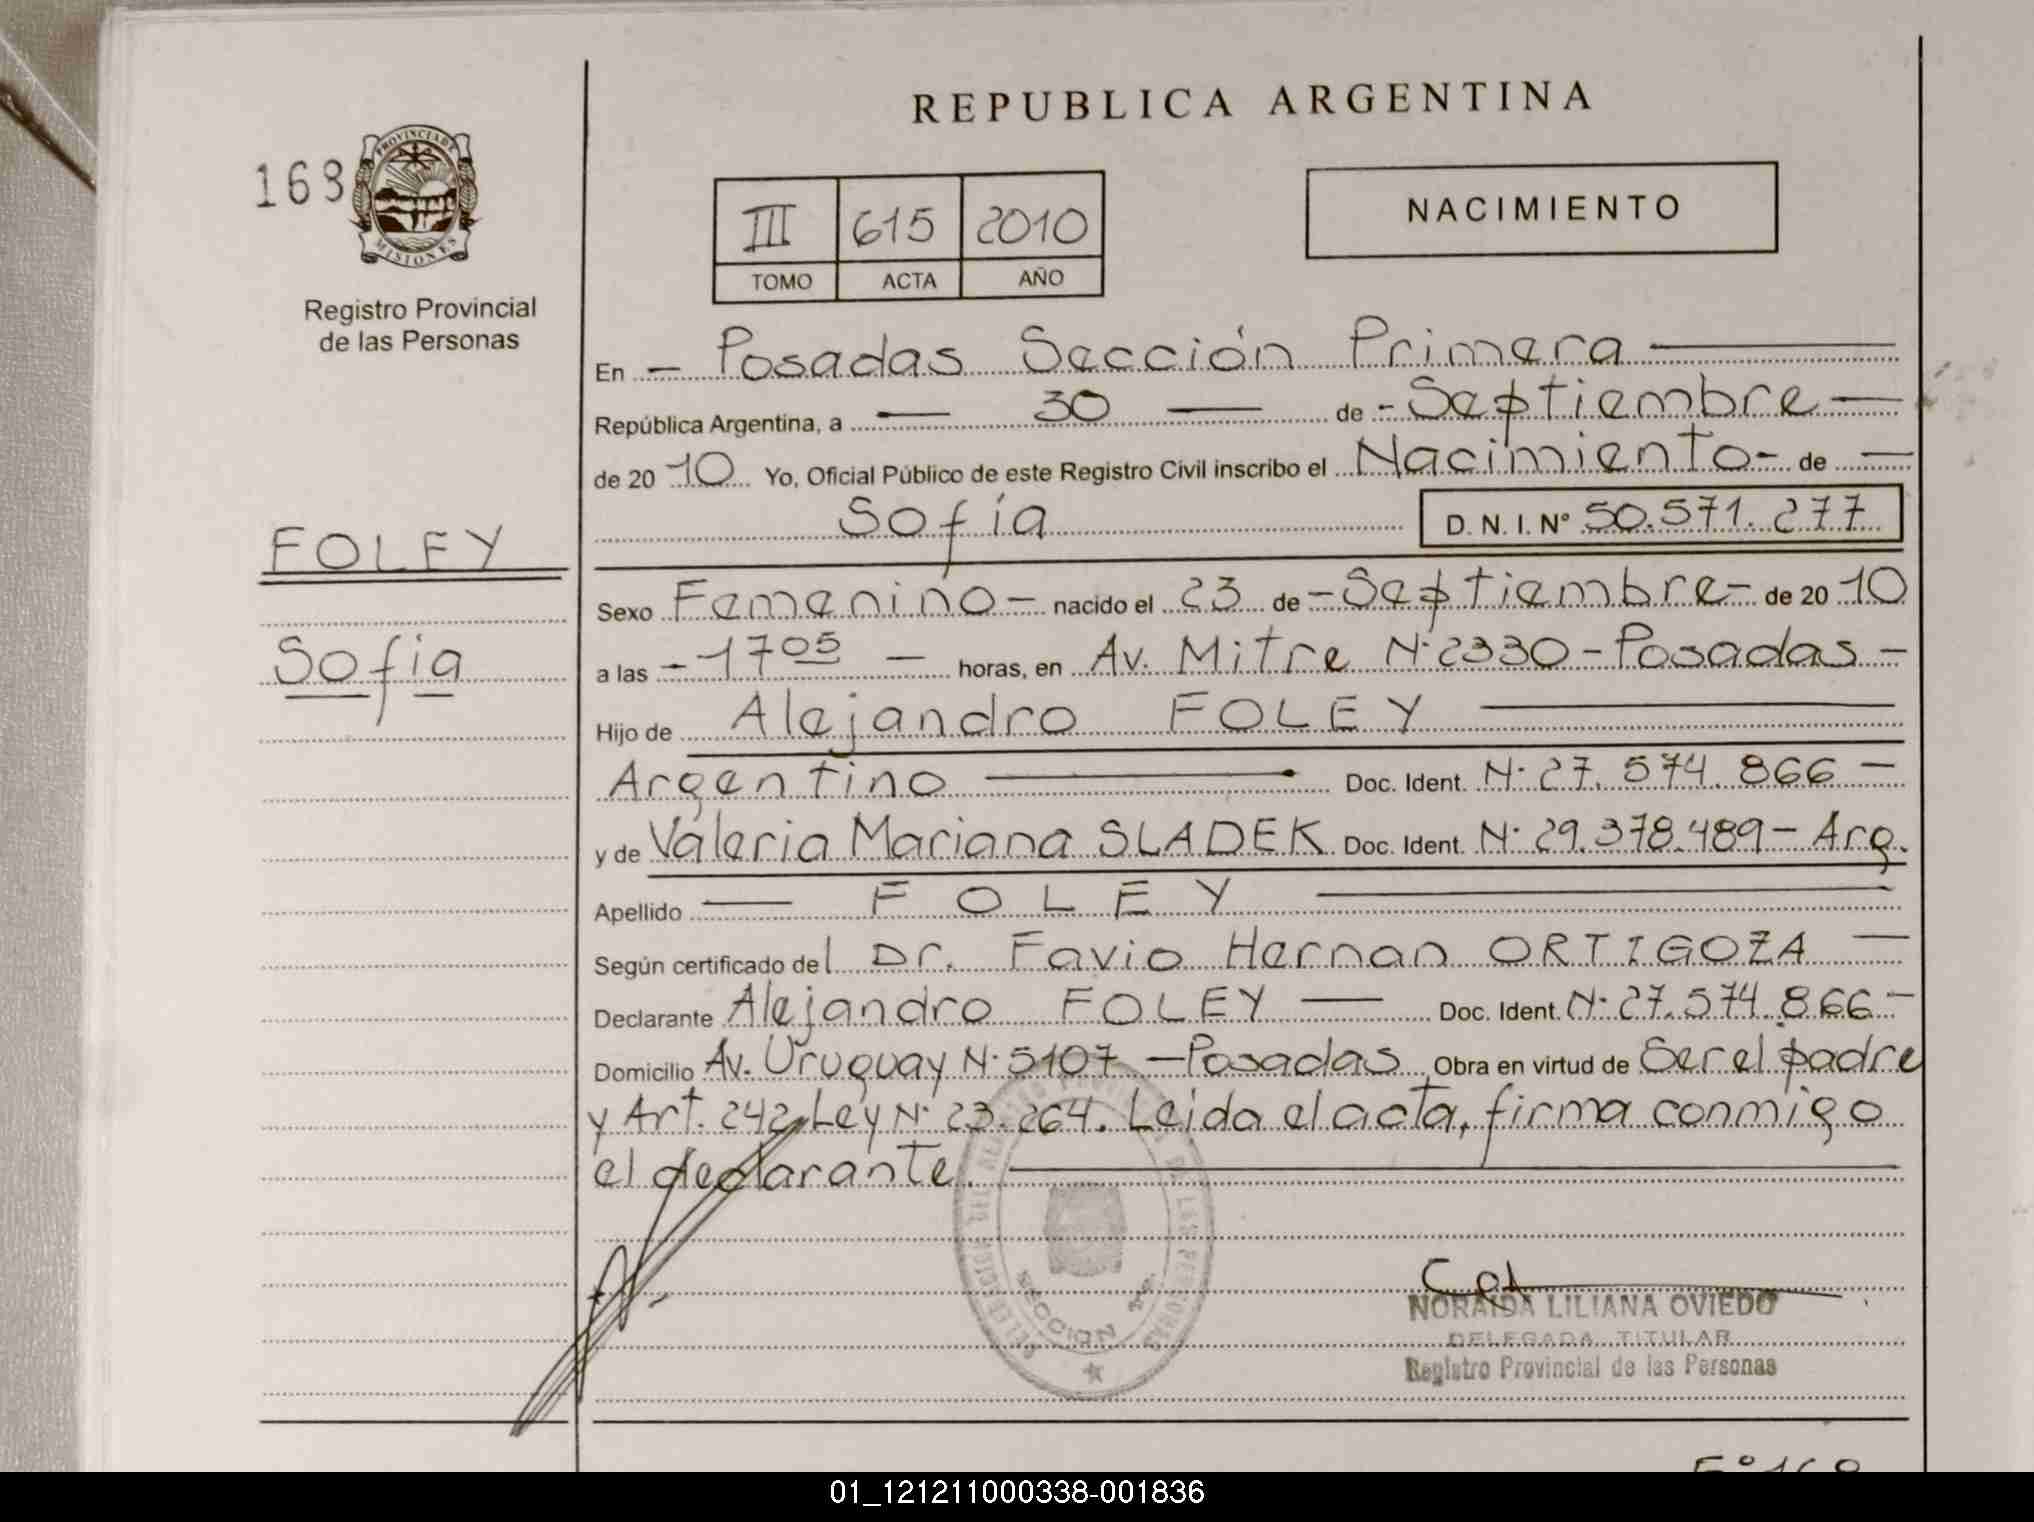 REPUBLICA ARGENTINA
168
PROVINCIA DE
MISIONES
Registro Provincial
de las Personas
III 615 2010
TOMO ACTA AÑO
NACIMIENTO
FOLEY
Sofía
En - Posadas Sección Primera
República Argentina, a — 30 — de - Septiembre —
de 20 10 Yo, Oficial Público de este Registro Civil inscribo el Nacimiento - de —
Sofía D. N. I. Nº 50.571.277
Sexo Femenino - nacido el 23 de - Septiembre - de 20 10
a las - 17 05 — horas, en Av. Mitre Nº 2330 - Posadas -
Hijo de Alejandro FOLEY
Argentino Doc. Ident. Nº 27.574.866 -
y de Valeria Mariana SLADEK Doc. Ident. Nº 29.378.489 - Arg.
Apellido — FOLEY
Según certificado del Dr. Favio Hernan ORTIGOZA —
Declarante Alejandro FOLEY — Doc. Ident. Nº 27.574.866 -
Domicilio Av. Uruguay Nº 5107 - Posadas Obra en virtud de Ser el padre
y Art. 242 Ley Nº 23.264. Leida el acta, firma conmigo
el declarante.
SECCION 1ª
NORAIDA LILIANA OVIEDO
DELEGADA TITULAR
Registro Provincial de las Personas
01_121211000338-001836